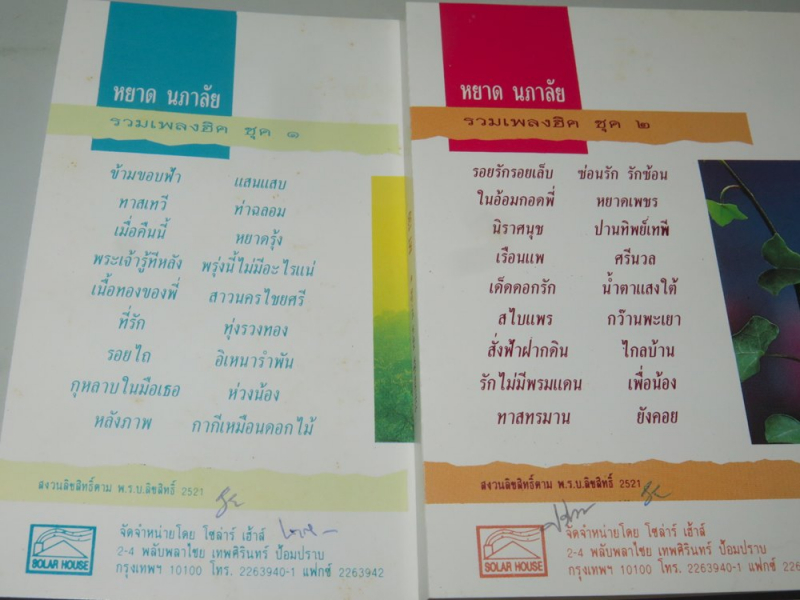 หยาด นภาลัย
รวมเพลงฮิต ชุด ๑
ข้ามขอบฟ้า แสนแสบ
ทาสเทวี ท่าฉลอม
เมื่อคืนนี้ หยาดรุ้ง
พระเจ้ารู้ทีหลัง พรุ่งนี้ไม่มีอะไรแน่
เนื้อทองของพี่ สาวนครไชยศรี
ที่รัก ทุ่งรวงทอง
รอยไถ อิเหนารำพัน
กุหลาบในมือเธอ ห่วงน้อง
หลังภาพ กากีเหมือนดอกไม้
สงวนลิขสิทธิ์ตาม พ.ร.บ.ลิขสิทธิ์ 2521
SOLAR HOUSE
จัดจำหน่ายโดย โซล่าร์ เฮ้าส์
2-4 พลับพลาไชย เทพศิรินทร์ ป้อมปราบ
กรุงเทพฯ 10100 โทร. 2263940-1 แฟกซ์ 2263942
หยาด นภาลัย
รวมเพลงฮิต ชุด ๒
รอยรักรอยเล็บ ซ่อนรัก รักซ้อน
ในอ้อมกอดพี่ หยาดเพชร
นิราศนุช ปานทิพย์เทพี
เรือนแพ ศรีนวล
เด็ดดอกรัก น้ำตาแสงใต้
สไบแพร กว๊านพะเยา
สั่งฟ้าฝากดิน ไกลบ้าน
รักไม่มีพรมแดน เพื่อน้อง
ทาสทรมาน ยังคอย
สงวนลิขสิทธิ์ตาม พ.ร.บ.ลิขสิทธิ์ 2521
SOLAR HOUSE
จัดจำหน่ายโดย โซล่าร์ เฮ้าส์
2-4 พลับพลาไชย เทพศิรินทร์ ป้อมปราบ
กรุงเทพฯ 10100 โทร. 2263940-1 แฟกซ์